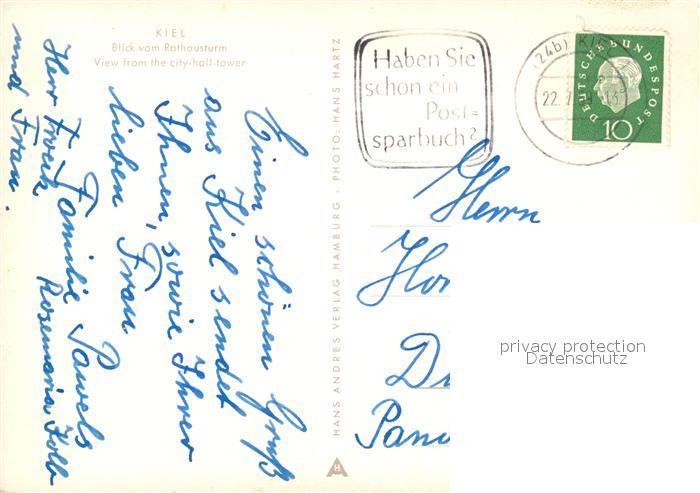 KIEL
Blick vom Rathausturm
View from the city-hall-tower
Einen schönen Gruß
aus Kiel sendet
Ihnen, sowie Ihrer
lieben Frau
Familie Pawels
Rosemaria Kolb
Herr
und Frau.
HANS ANDRES VERLAG HAMBURG · PHOTO: HANS HARTZ
H
Haben Sie
schon ein
Post=
sparbuch?
(24b) KIEL
22. 7.
DEUTSCHE BUNDESPOST
10
Herrn
privacy protection
Datenschutz